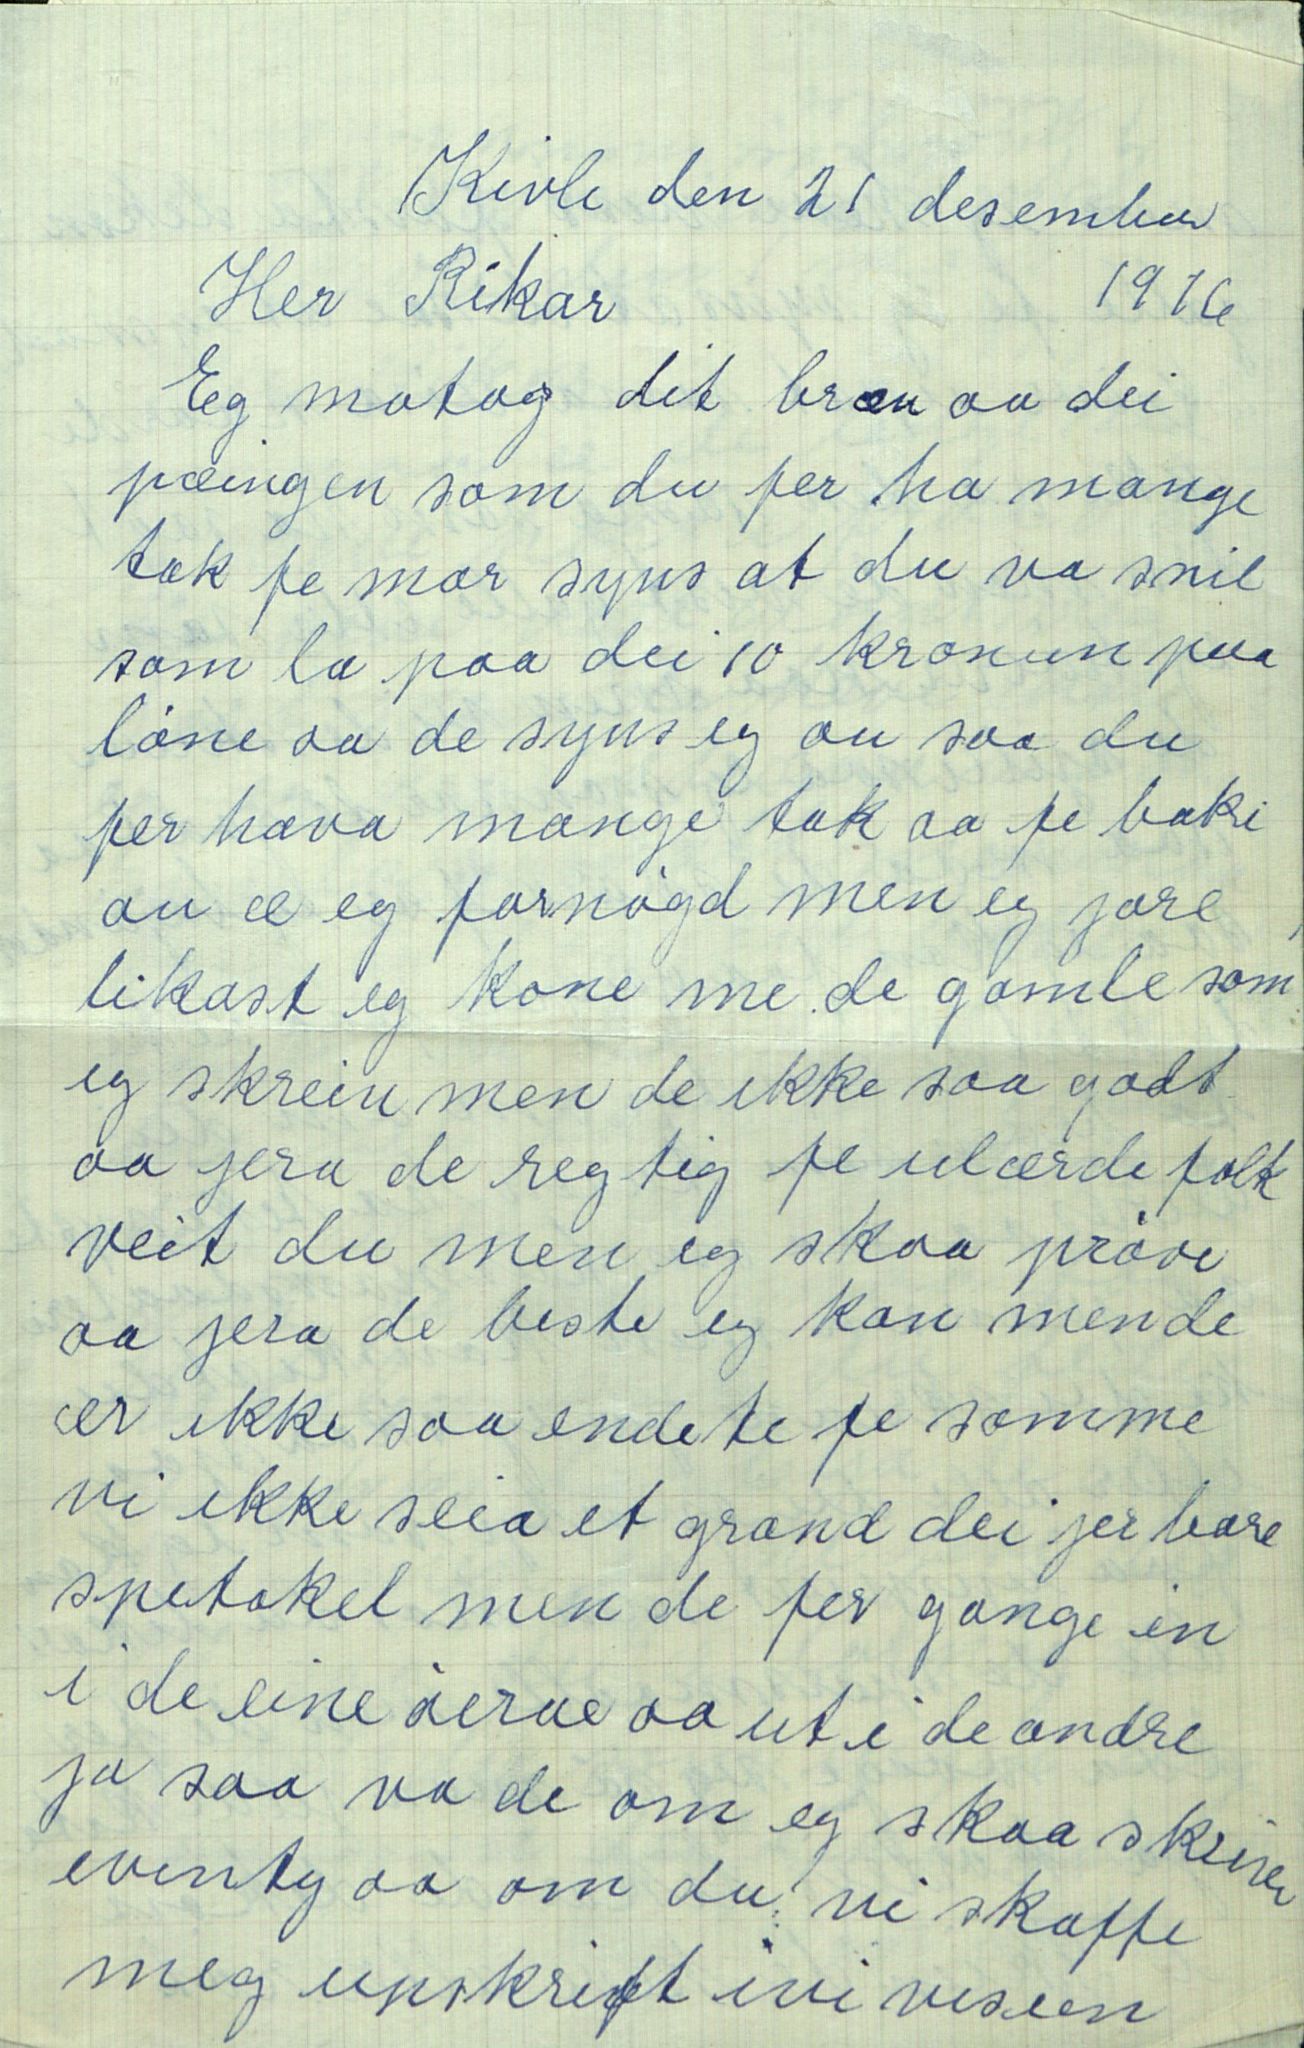 Kivle den 21 desember
Her Rikar 1916
Eg motog dit bræu aa dei
pæingen som du fer ha mange
tak fe mor syns at du va snil
som la paa dei 10 kronun paa
löne aa de syns eg au saa du
fer hava mange tak aa fe boki
au æ eg fornögd men eg jore
likast eg kone me de gamle som
eg skreiu men de ikke saa godt
aa jera de regtig fe ulærde folk
veit du men eg skaa pröve
aa jera de beste eg kan men de
er ikke saa endete fe somme
vi ikke seia et grand dei jer bare
spetakel men de fer gange in
i de eine öerae aa ut i de andre
ja saa va de om eg skaa skrive
eventy aa om du vi skaffe
meg upskrift ivi visen